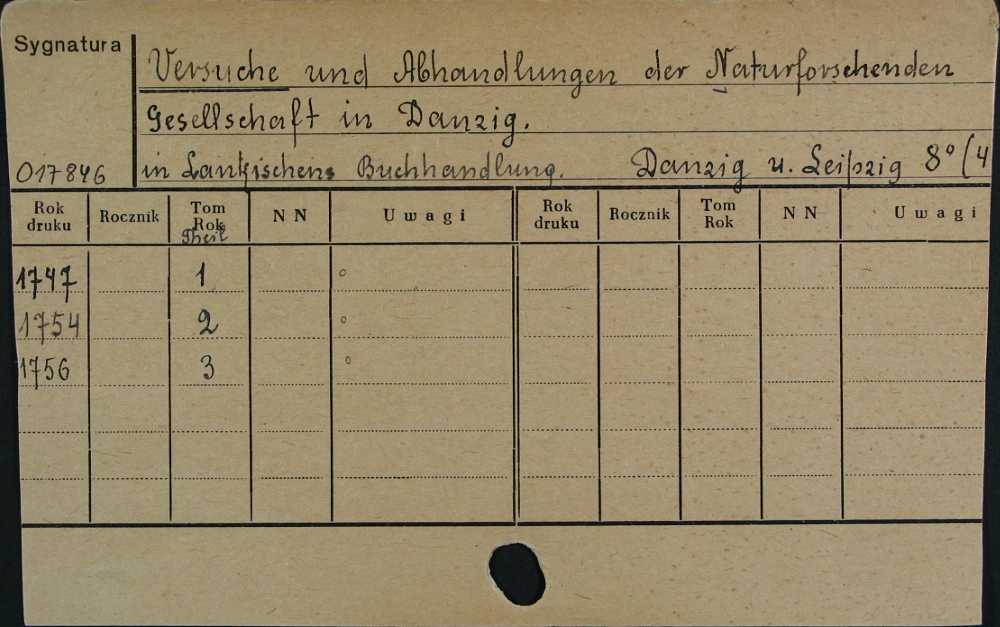 Sygnatura
Versuche und Abhandlungen der Naturforschenden
Gesellschaft in Danzig.
017846 in Lankischens Buchhandlung. Danzig u. Leipzig 8° (4
Rok druku Rocznik Tom Rok Theil N N Uwagi Rok druku Rocznik Tom Rok N N Uwagi
1747 1 °
1754 2 °
1756 3 °